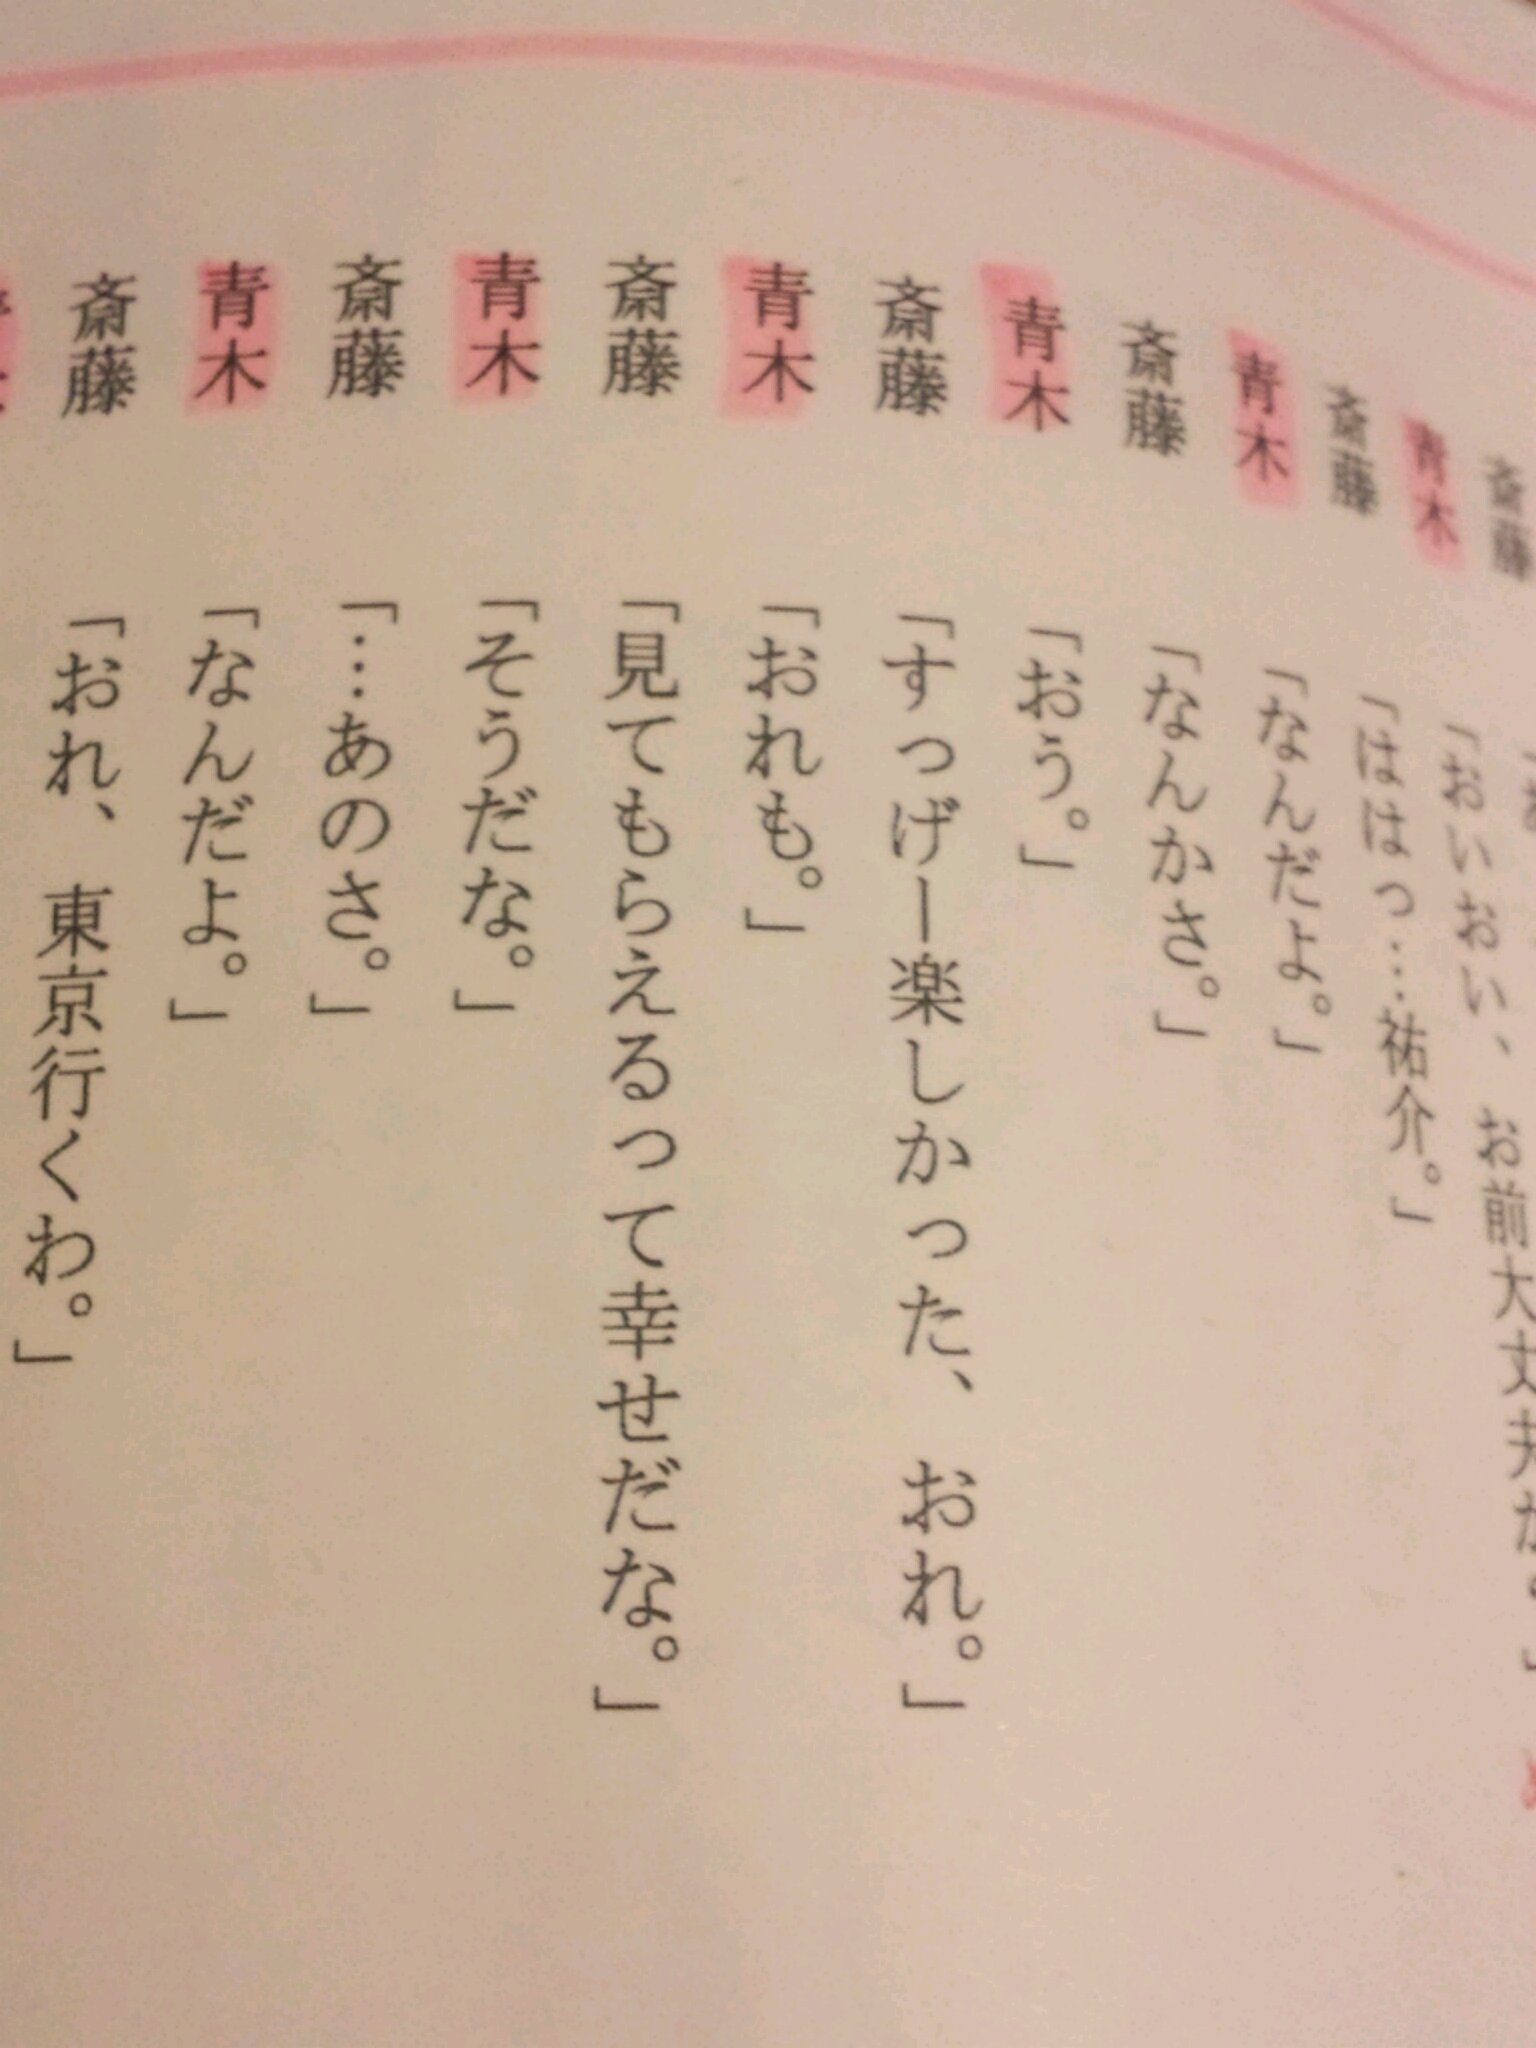 斎藤
青木 「おいおい、お前大丈夫か
斎藤 「ははっ…祐介。」
青木 「なんだよ。」
斎藤 「なんかさ。」
青木 「おう。」
斎藤 「すっげー楽しかった、おれ。」
青木 「おれも。」
斎藤 「見てもらえるって幸せだな。」
青木 「そうだな。」
斎藤 「…あのさ。」
青木 「なんだよ。」
斎藤 「おれ、東京行くわ。」